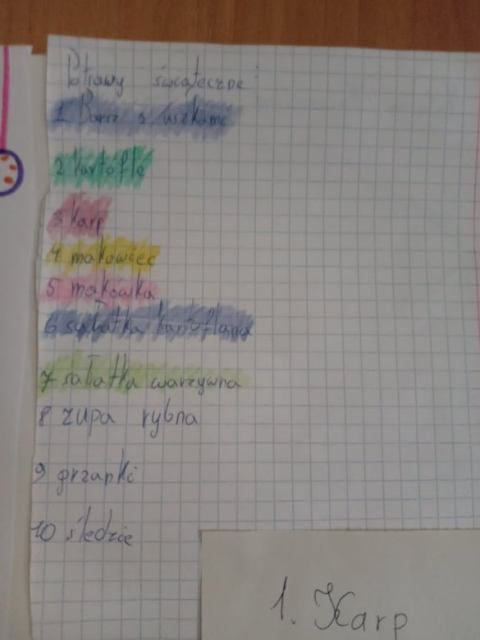 Potrawy świąteczne:
1 Barsz s uszkami
2 kartofle
3 karp
4 makowiec
5 makówka
6 sałatka kartoflana
7 sałatka warzywna
8 zupa rybna
9 grzanki
10 śledzie
1. Karp